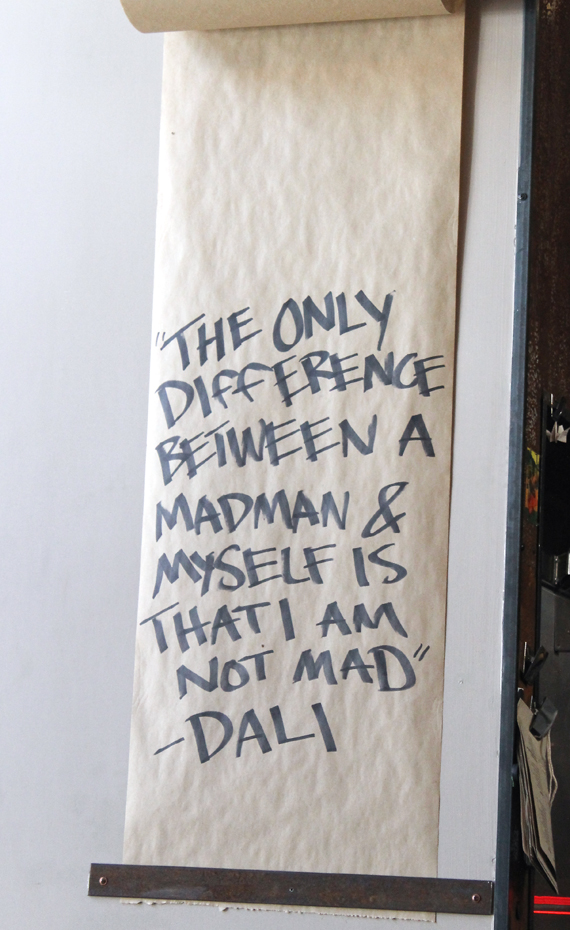 "THE ONLY
DIFFERENCE
BETWEEN A
MADMAN &
MYSELF IS
THAT I AM
NOT MAD"
-DALI